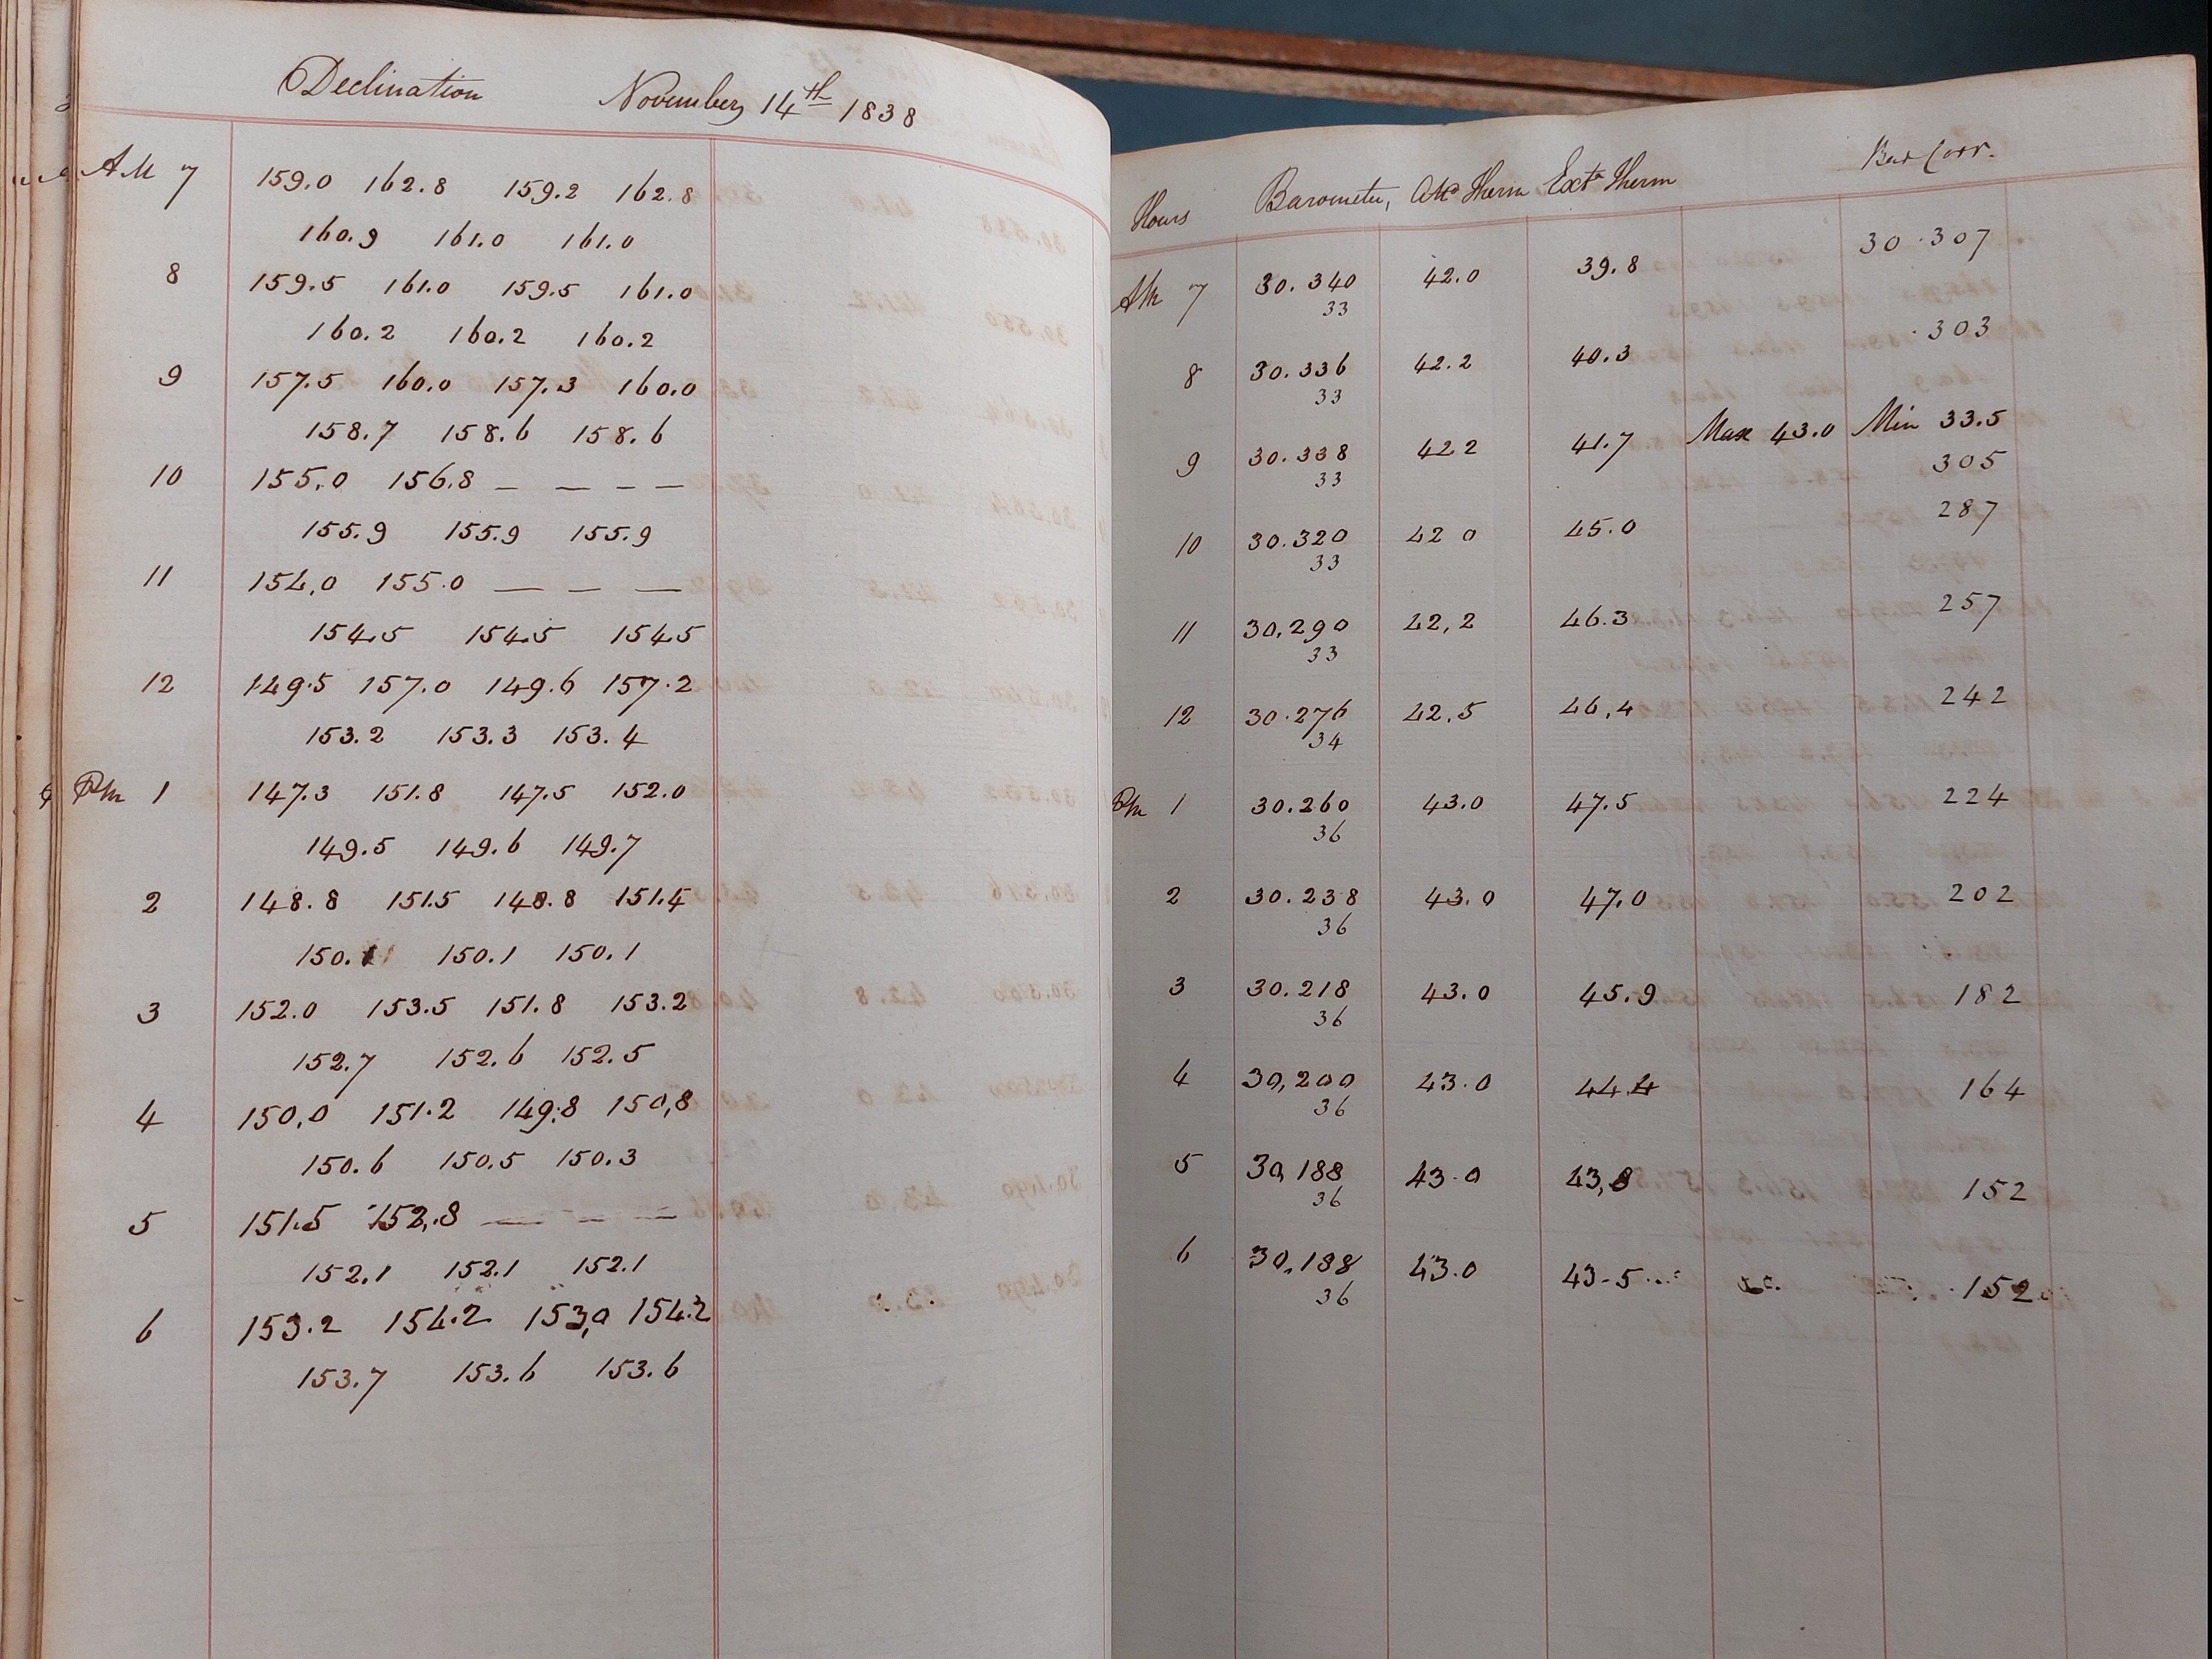 Declination November 14th 1838
AM 7 159.0 162.8 159.2 162.8
160.9 161.0 161.0
8 159.5 161.0 159.5 161.0
160.2 160.2 160.2
9 157.5 160.0 157.3 160.0
158.7 158.6 158.6
10 155.0 156.8 — — — —
155.9 155.9 155.9
11 154.0 155.0 — — —
154.5 154.5 154.5
12 149.5 157.0 149.6 157.2
153.2 153.3 153.4
PM 1 147.3 151.8 147.5 152.0
149.5 149.6 149.7
2 148.8 151.5 148.8 151.4
150.1 150.1 150.1
3 152.0 153.5 151.8 153.2
152.7 152.6 152.5
4 150,0 151.2 149.8 150,8
150.6 150.5 150.3
5 151.5 152.8 — — —
152.1 152.1 152.1
6 153.2 154.2 153,0 154.2
153.7 153.6 153.6
Hours Barometer, Attd Therm Extr Therm Bar Corr.
AM 7 30.340 42.0 39.8 30.307
33
8 30.336 42.2 40.3 .303
33
Max 43.0 Min 33.5
9 30.338 42 2 41.7 305
33
10 30.320 42 0 45.0 287
33
11 30,290 42,2 46.3 257
33
12 30.276 42.5 46,4 242
34
PM 1 30.260 43.0 47.5 224
36
2 30.238 43.0 47.0 202
36
3 30.218 43.0 45.9 182
36
4 30,200 43.0 44.4 164
36
5 30,188 43.0 43,8 152
36
6 30,188 43.0 43-5 .152
36